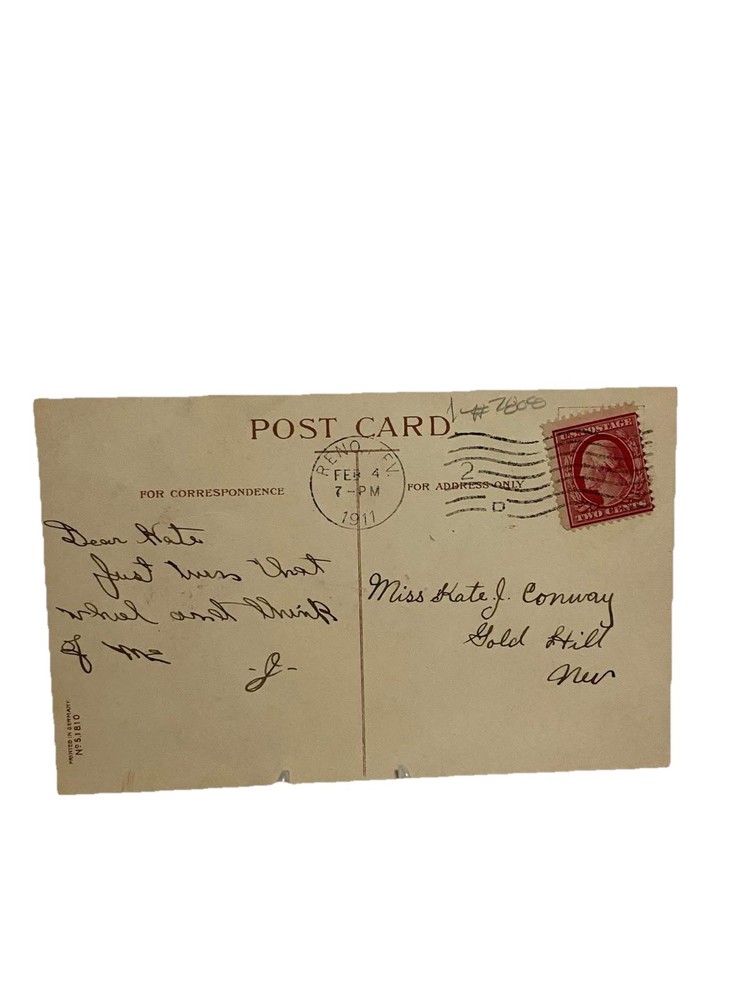 POST CARD
#7808
RENO NEV.
FEB 4
7-PM
1911
2
D
U.S. POSTAGE
TWO CENTS
FOR CORRESPONDENCE
FOR ADDRESS ONLY
Dear Kate
Just
think
of me
-J-
Miss Kate J. Conway
Gold Hill
Nev
PRINTED IN GERMANY
No 51810